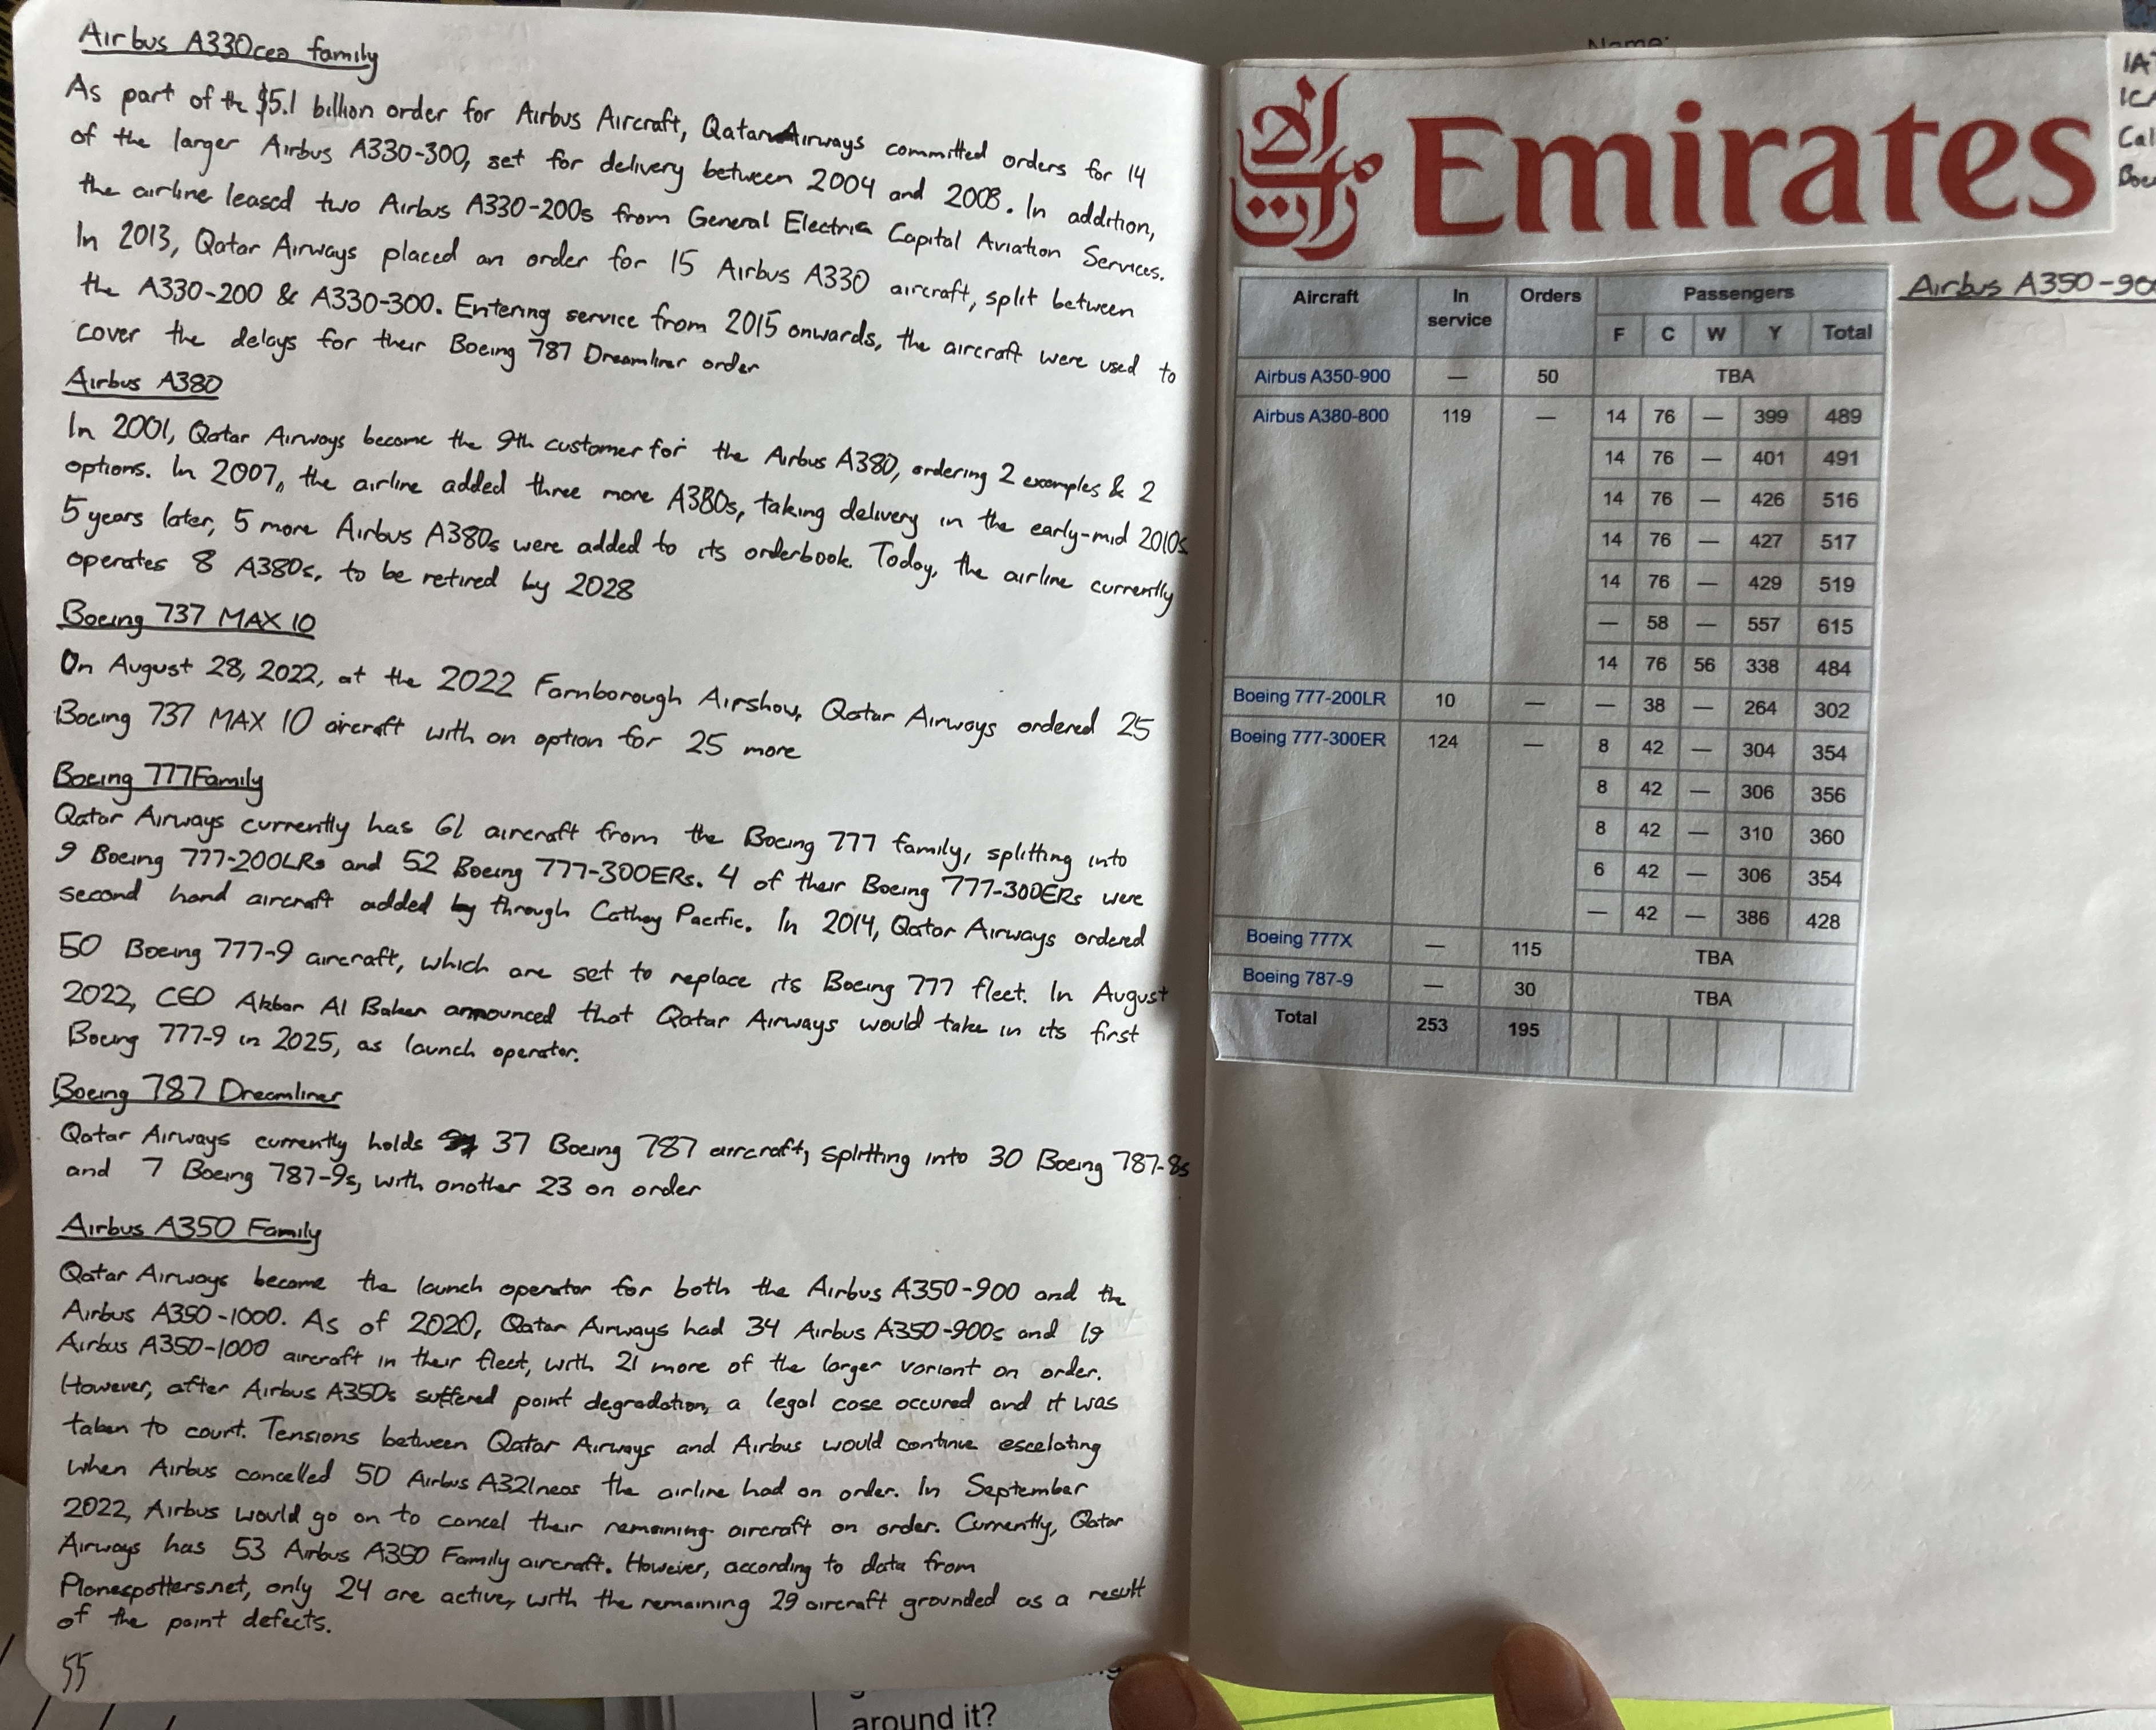 Airbus A330ceo family
As part of the $5.1 billion order for Airbus Aircraft, Qatar Airways committed orders for 14
of the larger Airbus A330-300, set for delivery between 2004 and 2008. In addition,
the airline leased two Airbus A330-200s from General Electric Capital Aviation Services.
In 2013, Qatar Airways placed an order for 15 Airbus A330 aircraft, split between
the A330-200 & A330-300. Entering service from 2015 onwards, the aircraft were used to
cover the delays for their Boeing 787 Dreamliner order
Airbus A380
In 2001, Qatar Airways became the 9th customer for the Airbus A380, ordering 2 examples & 2
options. In 2007, the airline added three more A380s, taking delivery in the early-mid 2010s
5 years later, 5 more Airbus A380s were added to its orderbook. Today, the airline currently
operates 8 A380s, to be retired by 2028
Boeing 737 MAX 10
On August 28, 2022, at the 2022 Farnborough Airshow, Qatar Airways ordered 25
Boeing 737 MAX 10 aircraft with an option for 25 more
Boeing 777 Family
Qatar Airways currently has 61 aircraft from the Boeing 777 family, splitting into
9 Boeing 777-200LRs and 52 Boeing 777-300ERs. 4 of their Boeing 777-300ERs were
second hand aircraft added by through Cathay Pacific. In 2014, Qatar Airways ordered
50 Boeing 777-9 aircraft, which are set to replace its Boeing 777 fleet. In August
2022, CEO Akbar Al Baker announced that Qatar Airways would take in its first
Boeing 777-9 in 2025, as launch operator.
Boeing 787 Dreamliner
Qatar Airways currently holds 37 Boeing 787 aircraft, splitting into 30 Boeing 787-8s
and 7 Boeing 787-9s, with another 23 on order
Airbus A350 Family
Qatar Airways became the launch operator for both the Airbus A350-900 and the
Airbus A350-1000. As of 2020, Qatar Airways had 34 Airbus A350-900s and 19
Airbus A350-1000 aircraft in their fleet, with 21 more of the larger variant on order.
However, after Airbus A350s suffered paint degradation, a legal case occured and it was
taken to court. Tensions between Qatar Airways and Airbus would continue escelating
when Airbus cancelled 50 Airbus A321neos the airline had on order. In September
2022, Airbus would go on to cancel their remaining aircraft on order. Currently, Qatar
Airways has 53 Airbus A350 Family aircraft. However, according to data from
Planespotters.net, only 24 are active, with the remaining 29 aircraft grounded as a result
of the paint defects.
55
Name:
Emirates
Aircraft In service Orders Passengers
F C W Y Total
Airbus A350-900 — 50 TBA
Airbus A380-800 119 — 14 76 — 399 489
14 76 — 401 491
14 76 — 426 516
14 76 — 427 517
14 76 — 429 519
— 58 — 557 615
14 76 56 338 484
Boeing 777-200LR 10 — — 38 — 264 302
Boeing 777-300ER 124 — 8 42 — 304 354
8 42 — 306 356
8 42 — 310 360
6 42 — 306 354
— 42 — 386 428
Boeing 777X — 115 TBA
Boeing 787-9 — 30 TBA
Total 253 195
Airbus A350-90
around it?